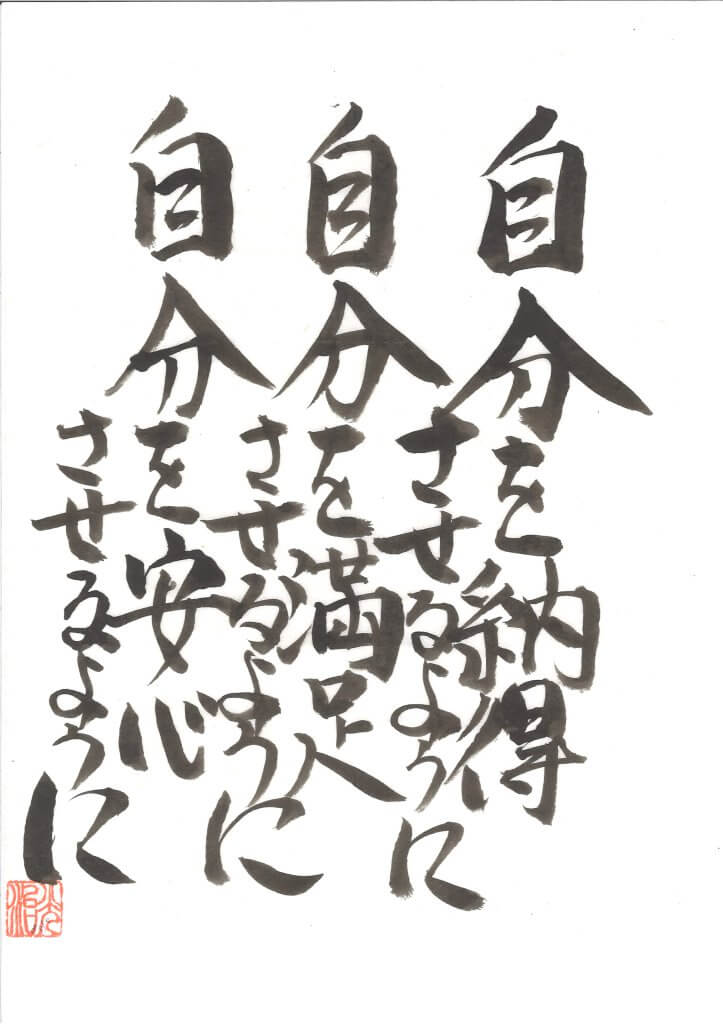 自分を納得
させるように
自分を満足
させるように
自分を安心
させるように